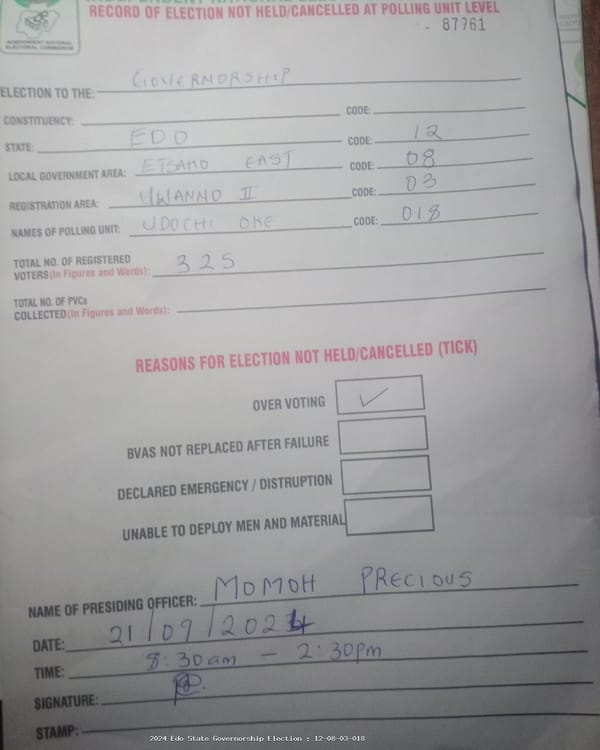 RECORD OF ELECTION NOT HELD/CANCELLED AT POLLING UNIT LEVEL
- 87761
INDEPENDENT NATIONAL
ELECTORAL COMMISSION
ELECTION TO THE: GOVERNORSHIP
CONSTITUENCY: CODE:
STATE: EDO CODE: 12
LOCAL GOVERNMENT AREA: ETSAKO EAST CODE: 08
REGISTRATION AREA: UWANNO II CODE: 03
NAMES OF POLLING UNIT: UDOCHI OKE CODE: 018
TOTAL NO. OF REGISTERED
VOTERS(In Figures and Words): 325
TOTAL NO. OF PVCs
COLLECTED(In Figures and Words):
REASONS FOR ELECTION NOT HELD/CANCELLED (TICK)
OVER VOTING ✓
BVAS NOT REPLACED AFTER FAILURE
DECLARED EMERGENCY / DISTRUPTION
UNABLE TO DEPLOY MEN AND MATERIAL
NAME OF PRESIDING OFFICER: MOMOH PRECIOUS
DATE: 21/09/2024
TIME: 8:30am - 2:30pm
SIGNATURE:
STAMP:
2024 Edo State Governorship Election : 12-08-03-018